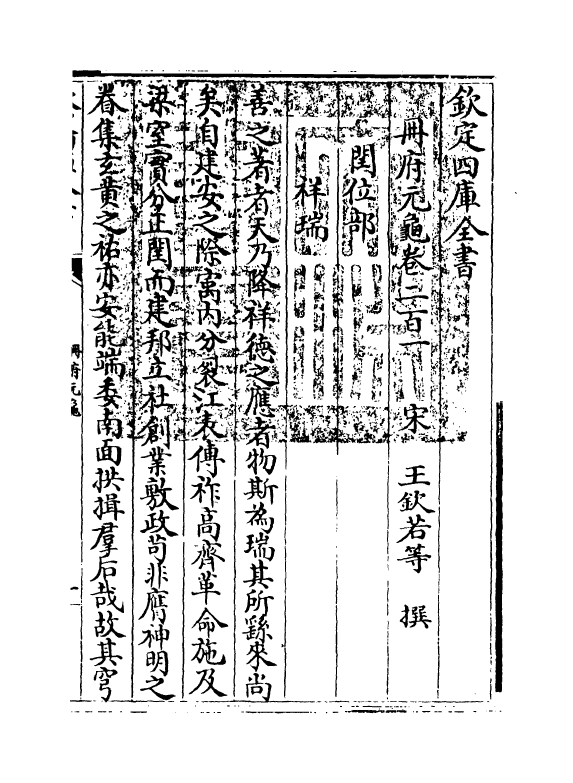 欽定四庫全書
冊府元龜卷二百一 宋 王欽若等 撰
閏位部
祥瑞
善之著者天乃降祥德之應者物斯為瑞其所繇來尚
矣自建安之際寓內分裂江表傳祚高齊革命施及
梁室實分正閏而建邦立社創業敷政茍非膺神明之
眷集玄黃之祐亦安能端委南面拱揖羣后哉故其穹
冊府元龜
一